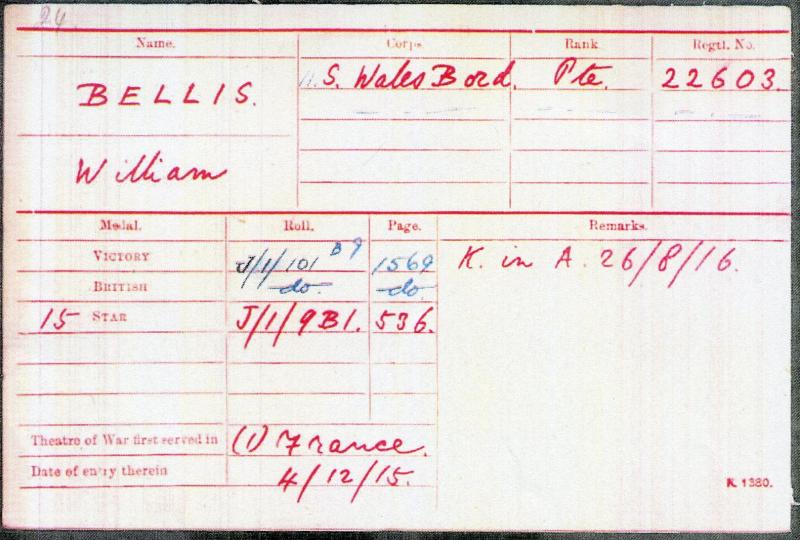 24
Name. Corps. Rank. Regtl. No.
BELLIS. S. Wales Bord. Pte. 22603.
William
Medal. Roll. Page. Remarks.
VICTORY J/1/101 B9 1569 K. in A. 26/8/16.
BRITISH do. do.
15 STAR J/1/9B1. 536.
Theatre of War first served in (1) France.
Date of entry therein 4/12/15.
K. 1380.